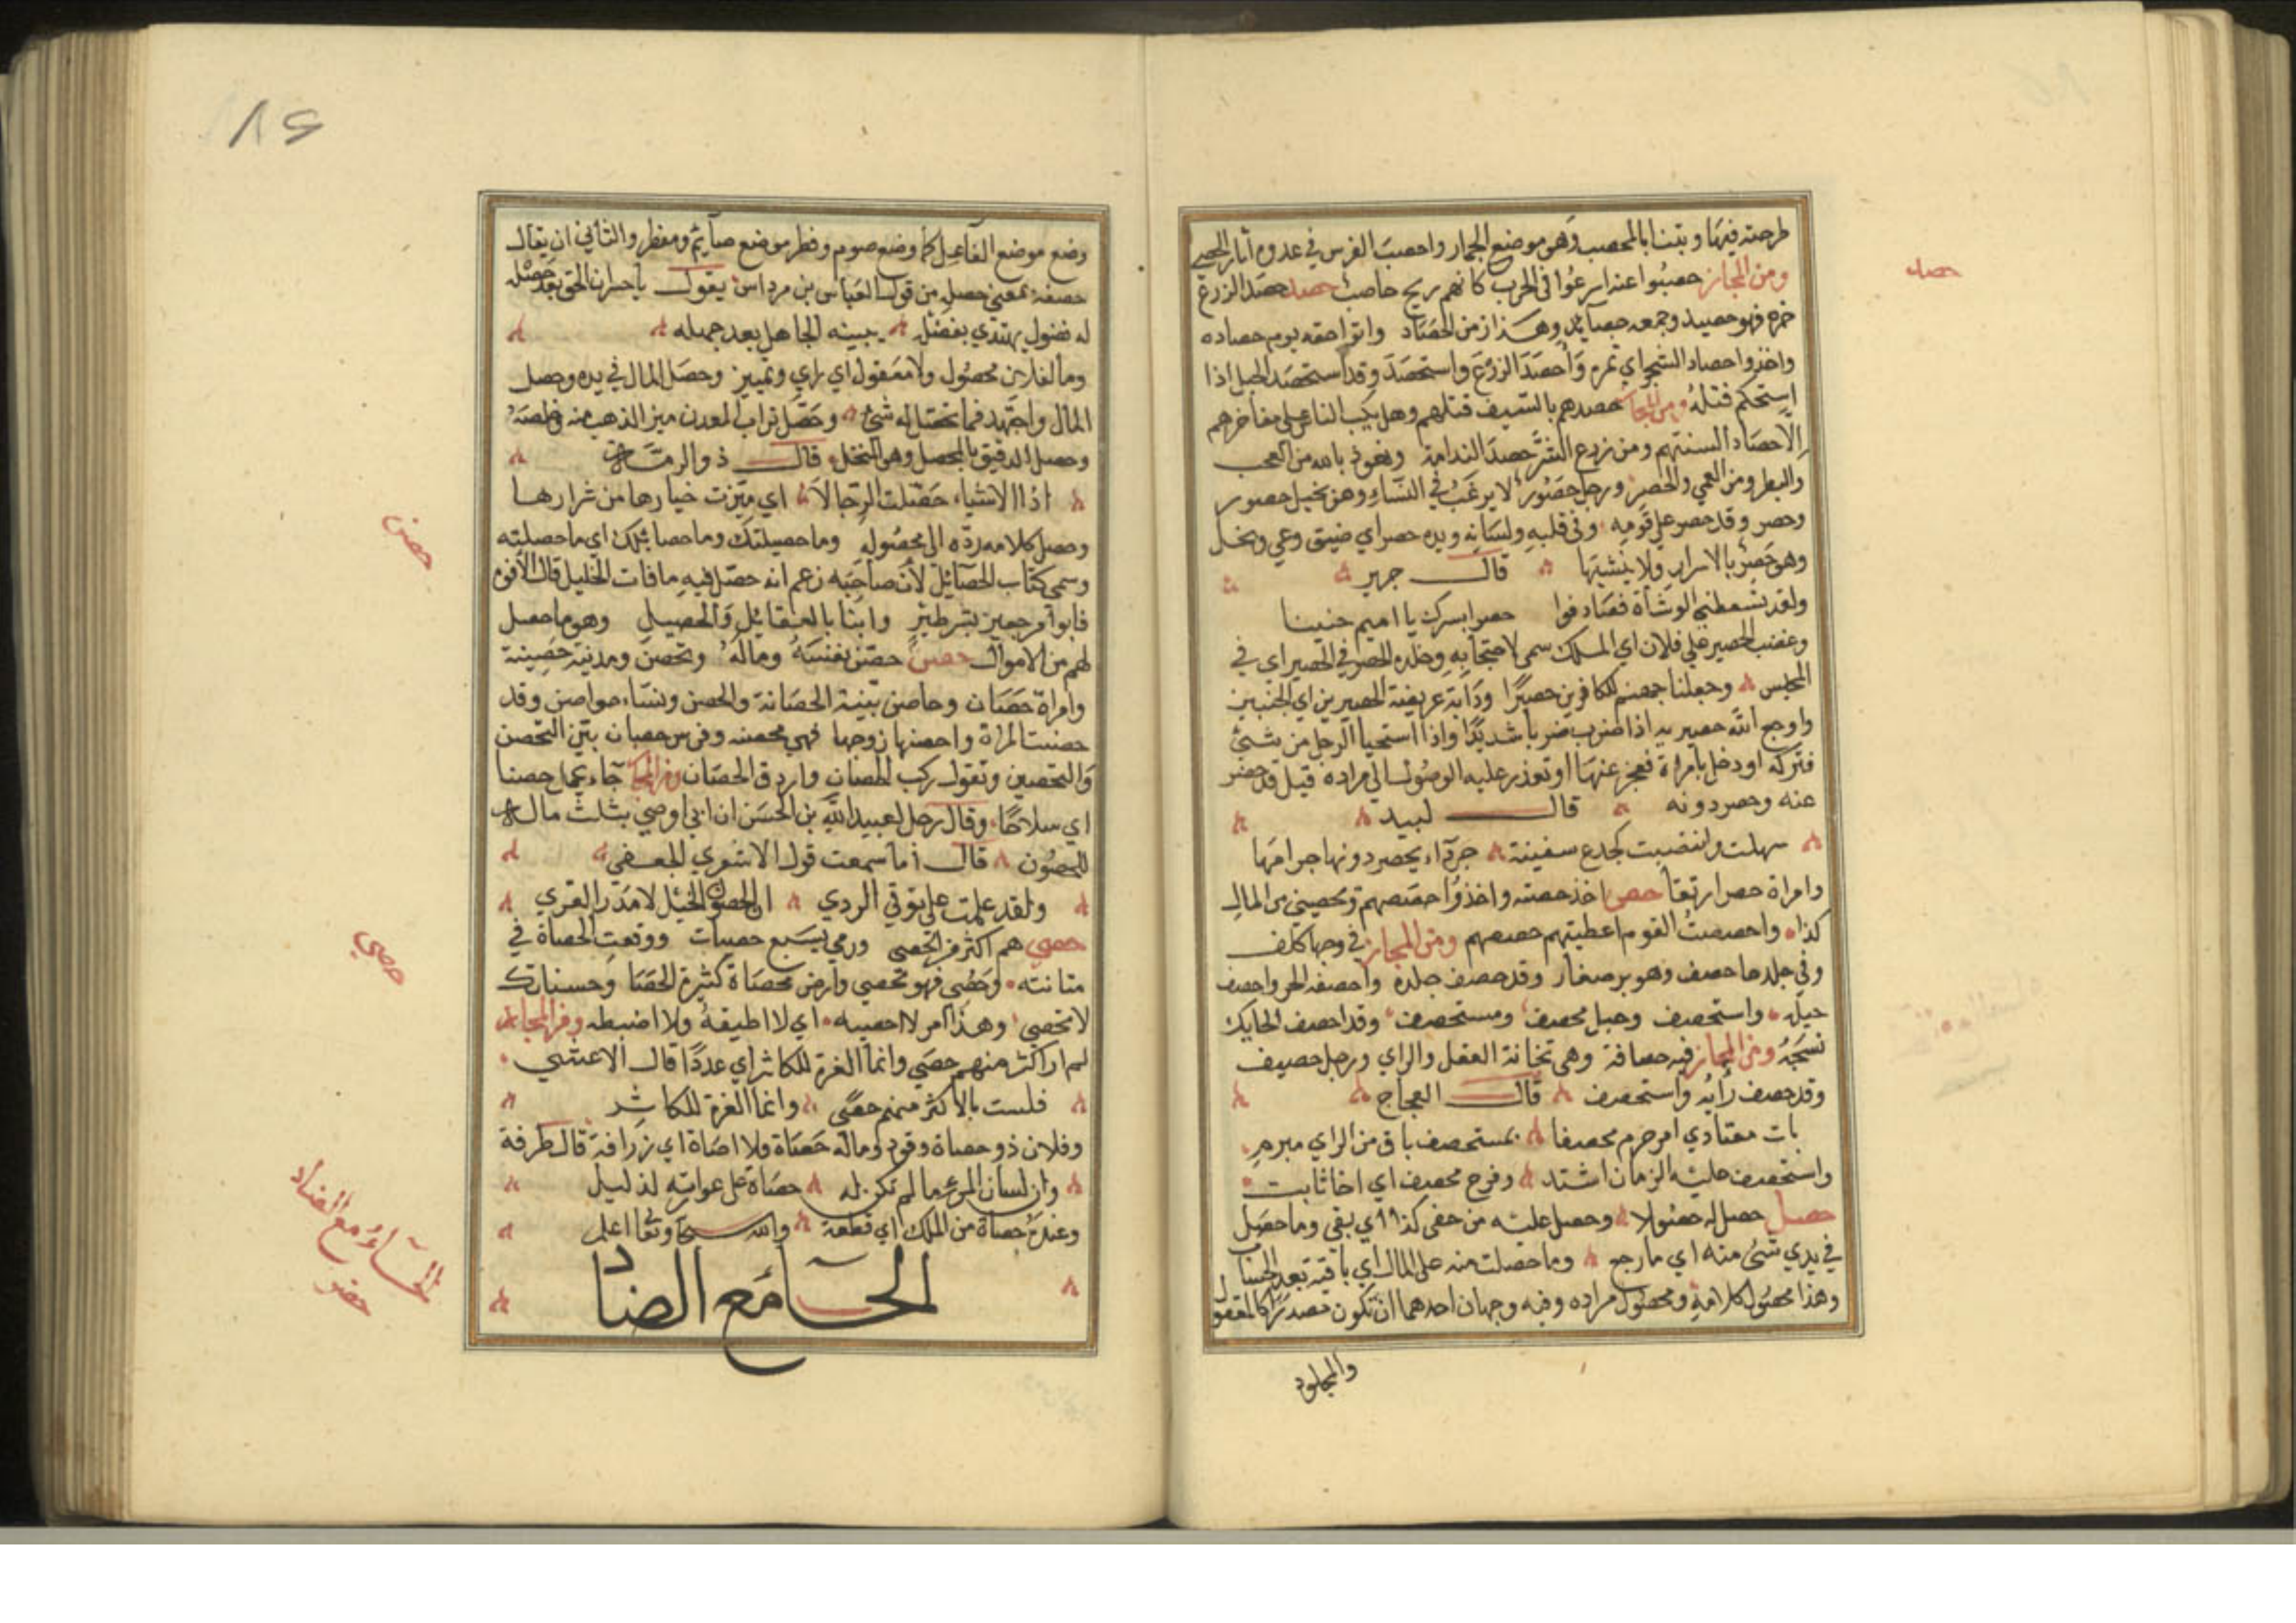 طرحته فيها وبتنا بالمحصب وهو موضع الجمار واحصب الفرس في عدوه أثار الحصى
ومن المجاز حصبوا عنه اسرعوا في الحرب كانهم ريح حاصب حصد حصد الزرع
جزه فهو حصيد وجمعه حصايد وهذا زمن الحصاد واتوا حقه يوم حصاده
واخذوا حصاد الشجر اي ثمره وأحصد الزرع واستحصد وقد استحصد الحبل اذا
استحكم فتله ومن المجاز حصدهم بالسيف قتلهم وهل يكب الناس على مناخرهم
الا حصاد السنتهم ومن زرع الشر حصد الندامة ونعوذ بالله من العجب
والبطر ومن العي والحصر ورجل حصور لا يرغب في النساء وهو بخيل حصور
وحصر وقد حصر على قومه وفي قلبه ولسانه ويده حصر اي ضيق وعي وبخل
وهو حصر بالاسرار ولا يفشيها قال جرير
ولقد تسقطني الوشاة فصادفوا حصرا بسرك يا اميم ضنينا
وغضب الحصير على فلان اي الملك سمى لاحتجابه وخلده الحصر في الحصير اي في
المحبس وجعلنا جهنم للكافرين حصيرا ودابة عريضة الحصيرين اي الجنبين
واوجع الله حصيريه اذا ضرب ضربا شديدا واذا استحيا الرجل من شيئ
فتركه او دخل بامراة فعجز عنها او تعذر عليه الوصول الي مراده قيل قد حصر
عنه وحصر دونه قال لبيد
سهلت وانتصبت كجذع سفينة جرداء يحصر دونها جرامها
وامراة حصرا رتقا حصص اخذ حصته واخذوا حصصهم وتحصيني من المال
كذا واحصصت القوم اعطيتهم حصصهم ومن المجاز في وجهها كلف
وفي جلدها حصف وهو بثر صغار وقد حصف جلده واحصفه الحر واحصف
حبله واستحصف وحبل محصف ومستحصف وقد احصف الحايك
نسجه ومن المجاز فيه حصافة وهي ثخانة العقل والراي ورجل حصيف
وقد حصف رأيه واستحصف قال العجاج
بات مقتادي امر حزم محصفا بمستحصف باق من الراي مبرم
واستحصف عليه الزمان اشتد وفرج محصف اي
حصل حصل له حصولا وحصل عليه من حقي كذا اي بقي وما حصل
في يدي شئ منه اي ما رجع وما حصلت منه على المال اي باقيه بعد الحساب
وهذا محصول كلامه ومحصول مراده وفيه وجهان احدهما ان تكون مصدرا كالمعقول
والمجلود
حصد
٨٤
وضع موضع الفاعل كما وضع صوم وفطر موضع صآئم ومفطر والثاني ان يقال
حصفه بمعنى حصل من قول العباس بن مرداس يقول يا جسر ان الحق بعد حصله
له فضول يهتدي بفضله يبينه الجاهل بعد جهله
وما لفلان محصول ولا معقول اي راي وتمييز وحصل المال في يده وحصل
المال واجتهد فما تحصل له شئ وحصل تراب المعدن ميز الذهب منه وخلصه
وحصل الدقيق بالمحصل وهو المنخل قال ذو الرمة
اذا الاشياء حصلت الرجالا اي ميزت خيارها من شرارها
وحصل كلامه رده الى محصوله وما حصيلتك وما حصائلك اي ما حصلته
وسمى كتاب الحصائل لأن صاحبه زعم انه حصل فيه ما فات الخليل قال الأفوه
فابوا مرجعين بشر طير وابنا بالعقائل والحصيل وهو ما حصل
لهم من الاموال حصن حصن نفسه وماله وتحصن ومدينة حصينة
وامراة حصان وحاصن بينة الحصانة والحصن ونساء حواصن وقد
حصنت المراة واحصنها زوجها فهي محصنه وفرس حصان بين التحصن
والتحصين وتقول ركب الحصان واردف الحصان ومن المجاز جاء يحمل حصنا
اي سلاحا وقال رجل لعبيد الله بن الحسن ان ابي اوصي بثلث ماله
للحصون قال أما سمعت قول الاشعري الجعفي
ولقد علمت على توقي الردي ان الحصون الخيل لا مدر القري
حصي هم اكثر من الحصى ورمي بسبع حصيات ووقعت الحصاة في
مثانته وحصي فهو محصي وارض محصاة كثيرة الحصا وحسناتك
لا تحصى وهذا أمر لا احصيه اي لا اطيقه ولا اضبطه ومن المجاز
لم ار اكثر منهم حصى وانما العزة للكاثر اي عددا قال الاعشى
فلست بالاكثر منهم حصى وانما العزة للكاثر
وفلان ذو حصاة وقور وماله حصاة ولا اصاة اي زرافة قال طرفة
وان لسان المرء ما لم تكن له حصاة على عواته لدليل
وعنده حصاة من الملك اي قطعة والله سبحانه وتعا اعلم
الحآ مع الضاد
حصن
حصي
الحآء مع الضاد
حضر